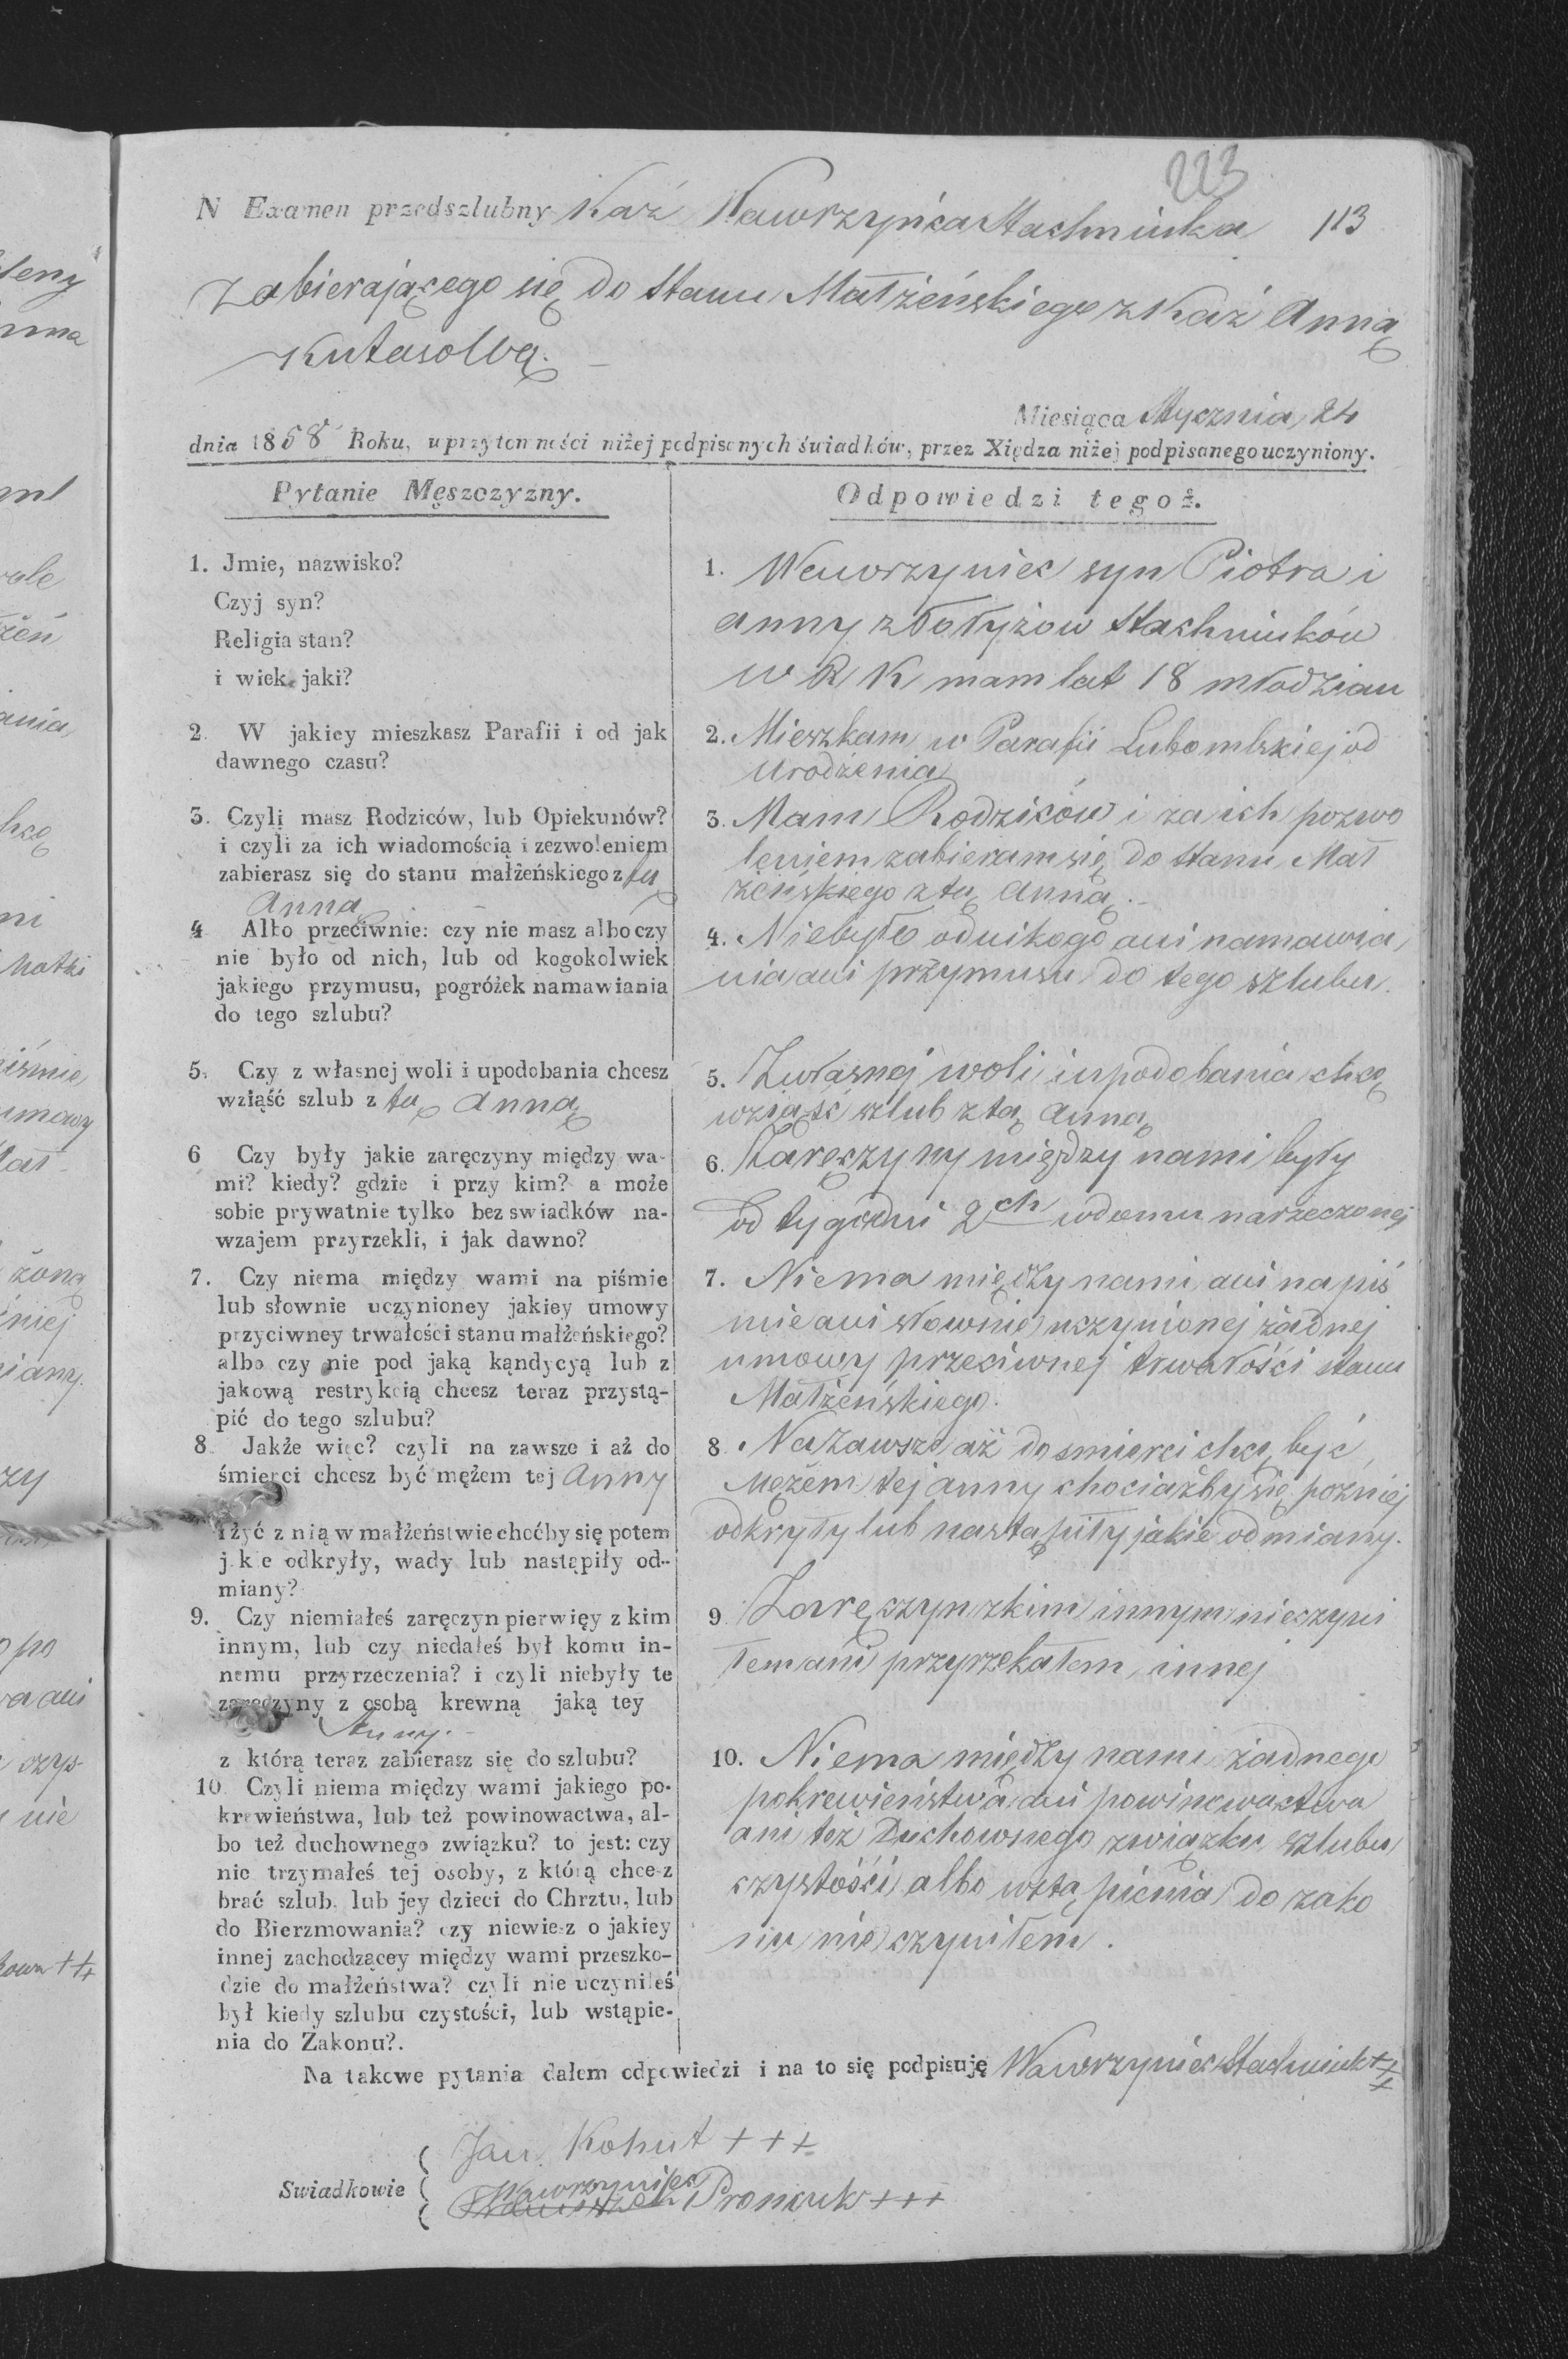 223
N Examen przedszlubny Każ Wawrzyńca Stachniuka 113
Zabierającego się do Stanu Małżeńskiego z Każ Anną
Kutasową.
Miesiąca Stycznia 24
dnia 1858 Roku, uprzytomności niżej podpisanych świadków, przez Xiędza niżej podpisanego uczyniony.
Pytanie Męszczyzny.
1. Jmie, nazwisko?
Czyj syn?
Religia stan?
i wiek jaki?
2. W jakiey mieszkasz Parafii i od jak
dawnego czasu?
3. Czyli masz Rodziców, lub Opiekunów?
i czyli za ich wiadomością i zezwoleniem
zabierasz się do stanu małżeńskiego z tą
Anną
4 Albo przeciwnie: czy nie masz albo czy
nie było od nich, lub od kogokolwiek
jakiego przymusu, pogróżek namawiania
do tego szlubu?
5. Czy z własnej woli i upodobania chcesz
wziąść szlub z tą Anną
6 Czy były jakie zaręczyny między wa-
mi? kiedy? gdzie i przy kim? a może
sobie prywatnie tylko bez swiadków na-
wzajem przyrzekli, i jak dawno?
7. Czy niema między wami na piśmie
lub słownie uczynioney jakiey umowy
przyciwney trwałości stanu małżeńskiego?
albo czy nie pod jaką kąndycyą lub z
jakową restrykcią chcesz teraz przystą-
pić do tego szlubu?
8. Jakże więc? czyli na zawsze i aż do
śmierci chcesz być mężem tej Anny
i żyć z nią w małżeństwie choćby się potem
jakie odkryły, wady lub nastąpiły od-
miany?
9. Czy niemiałeś zaręczyn pierwięy z kim
innym, lub czy niedałeś był komu in-
nemu przyrzeczenia? i czyli niebyły te
zaręczyny z osobą krewną jaką tey
Anny.
z którą teraz zabierasz się do szlubu?
10. Czyli niema między wami jakiego po-
krewieństwa, lub też powinowactwa, al-
bo też duchownego związku? to jest: czy
nie trzymałeś tej osoby, z którą chcesz
brać szlub, lub jey dzieci do Chrztu, lub
do Bierzmowania? czy niewiesz o jakiey
innej zachodzącey między wami przeszko-
dzie do małżeństwa? czyli nie uczyniłeś
był kiedy szlubu czystości, lub wstąpie-
nia do Zakonu?.
Odpowiedzi tegoż.
1. Wawrzyniec syn Piotra i
Anny z Stachniuków
w R K mam lat 18 młodzian
2. Mieszkam w Parafii Lubomlskiej od
urodzenia
3. Mam Rodziców i za ich pozwo
leniem zabieram się do stanu Mał
żeńskiego z tą Anną.
4. Niebyło od nikogo ani namawia
nia ani przymusu do tego szlubu.
5. Zwłasnej woli i upodobania chcę
wziąść szlub z tą Anną
6. Zaręczyny między nami były
od tygodni 2ch w domu narzeczonej
7. Niema między nami ani na piś
mie ani słownie uczynionej żadnej
umowy przeciwnej trwałości stanu
Małżeńskiego.
8. Na Zawsze aż do smierci chcę być
Mężem tej anny chociażby się pozniej
odkryły lub nastąpiły jakie odmiany.
9. Zaręczyn z kim innym nie czyni
łem ani przyrzekałem innej
10. Niema między nami żadnego
pokrewieństwa ani powinowactwa
ani też Duchownego związku szlubu
czystości albo wstąpienia do zako
nu nie czyniłem.
Na takowe pytania dałem odpowiedzi i na to się podpisuję Wawrzyniec Stachniuk +++
Swiadkowie
Jan Kohut +++
Wawrzyniec
Proniuk +++